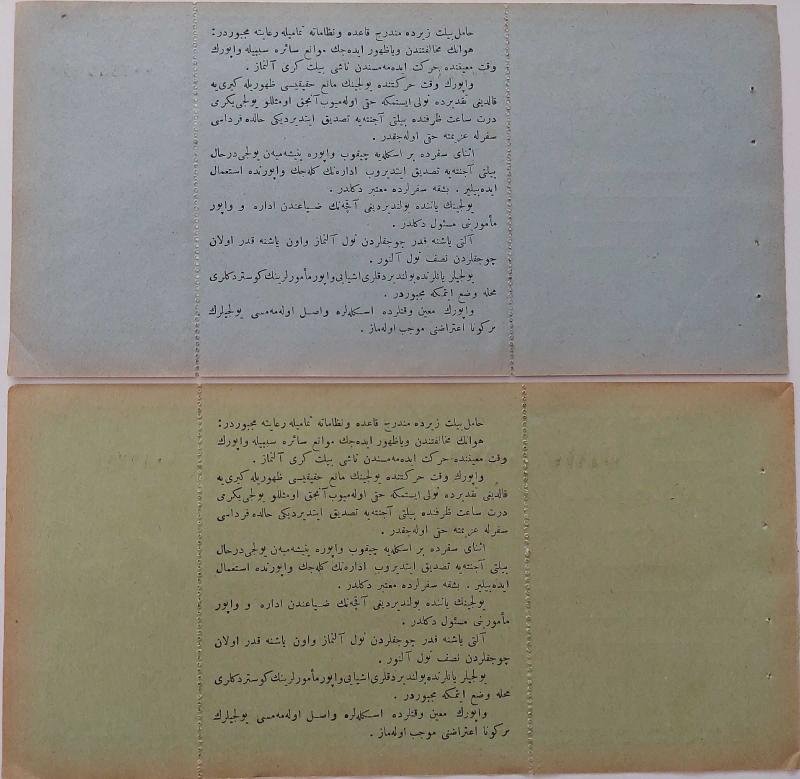 حامل بیلت زیرده مندرج قاعده و نظاماته تمامیله رعایته مجبوردر :
هوانك مخالفتندن ویاظهور ایده‌جك موانع سائره سببیله واپورك
وقت معیننده حرکت ایده‌مه‌مسندن ناشی بیلت کری آلنماز .
واپورك وقت حرکتنده یولجینك مانع حقیقیسی ظهوریله کیری‌یه
قالدیغی تقدیرده نولی ایستمکه حقی اوله‌میوب آنجق اومثللو یولجی یکرمی
درت ساعت ظرفنده بیلتی آجنته‌یه تصدیق ایتدیردیکی حالده فرداسی
سفرله عزیمته حقی اوله‌جقدر .
اثنای سفرده بر اسکله‌یه چیقوب واپوره یتیشه‌میه‌ن یولجی درحال
بیلتی آجنته‌یه تصدیق ایتدیروب اداره‌نك کله‌جك واپورنده استعمال
ایده‌بیلیر . بشقه سفرلرده معتبر دکلدر .
یولجینك یاننده بولندیردیغی آقچه‌نك ضیاعندن اداره و واپور
مأمورینی مسئول دکلدر .
آلتی یاشنه قدر چوجقلردن نول آلنماز واون یاشنه قدر اولان
چوجقلردن نصف نول آلنور .
یولجیلر یانلرنده بولندیردقلری اشیایی واپور مأمورلرینك کوستردکلری
محله وضع ایتمکه مجبوردر .
واپورك معین وقتلرده اسکله‌لره واصل اوله‌مه‌مسی یولجیلرك
برکونا اعتراضنی موجب اوله‌ماز .
حامل بیلت زیرده مندرج قاعده و نظاماته تمامیله رعایته مجبوردر :
هوانك مخالفتندن ویاظهور ایده‌جك موانع سائره سببیله واپورك
وقت معیننده حرکت ایده‌مه‌مسندن ناشی بیلت کری آلنماز .
واپورك وقت حرکتنده یولجینك مانع حقیقیسی ظهوریله کیری‌یه
قالدیغی تقدیرده نولی ایستمکه حقی اوله‌میوب آنجق اومثللو یولجی یکرمی
درت ساعت ظرفنده بیلتی آجنته‌یه تصدیق ایتدیردیکی حالده فرداسی
سفرله عزیمته حقی اوله‌جقدر .
اثنای سفرده بر اسکله‌یه چیقوب واپوره یتیشه‌میه‌ن یولجی درحال
بیلتی آجنته‌یه تصدیق ایتدیروب اداره‌نك کله‌جك واپورنده استعمال
ایده‌بیلیر . بشقه سفرلرده معتبر دکلدر .
یولجینك یاننده بولندیردیغی آقچه‌نك ضیاعندن اداره و واپور
مأمورینی مسئول دکلدر .
آلتی یاشنه قدر چوجقلردن نول آلنماز واون یاشنه قدر اولان
چوجقلردن نصف نول آلنور .
یولجیلر یانلرنده بولندیردقلری اشیایی واپور مأمورلرینك کوستردکلری
محله وضع ایتمکه مجبوردر .
واپورك معین وقتلرده اسکله‌لره واصل اوله‌مه‌مسی یولجیلرك
برکونا اعتراضنی موجب اوله‌ماز .